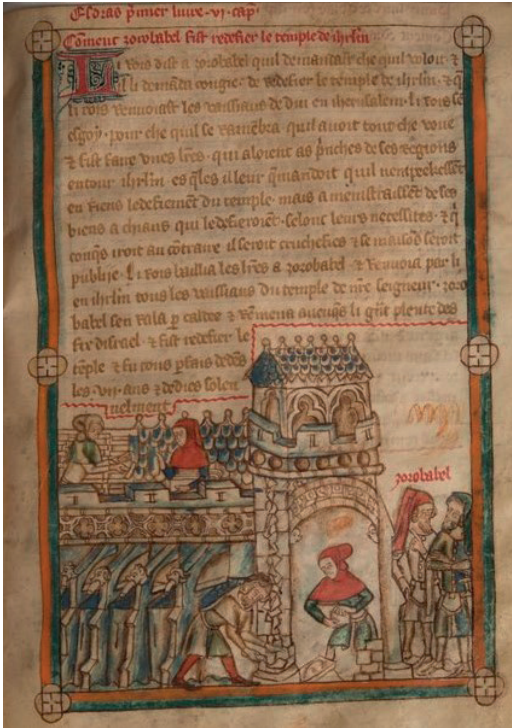 Esdras p̃mier livre · vj · cap̃ ·
Coment zorobabel fist redefier le temple de ihrl̃m
Li rois dist a zorobabel quil demandast che quil voloit · ⁊
il li demãda congie · de redefier le temple de ihrl̃m · ⁊ q̃
li rois renvoiast les vaissiaus de diu en iherusalem · li rois se
esgoÿ · pour che quil se ramẽbra · quil avoit tout che voue
⁊ fist faire unes l̃res · qui aloient as p̃nches de ses regions
entour ihrl̃m · es q̃les il leur q̃mandoit quil nenpeekessent
en riens ledefiement du temple · mais amenistraissent de ses
biens a chiaus qui ledefieroient · selonc leurs necessites · ⁊ q̃
conq̃s iroit au cõtraire il seroit cruchefies ⁊ se maisõ seroit
publije · Li rois bailla les l̃res a zorobabel · ⁊ renvoia par li
en ihrl̃m tous les vaissiaus du temple de nr̃e seigneur · zoro
babel sen rala p̃ caldee ⁊ remena avecq̃s li g̃nt plente des
fix disrael · ⁊ fist redefier le
tẽple ⁊ fu tous p̃fais dedẽs
les · vij · ans ⁊ dedies solen
nelment
zorobabel